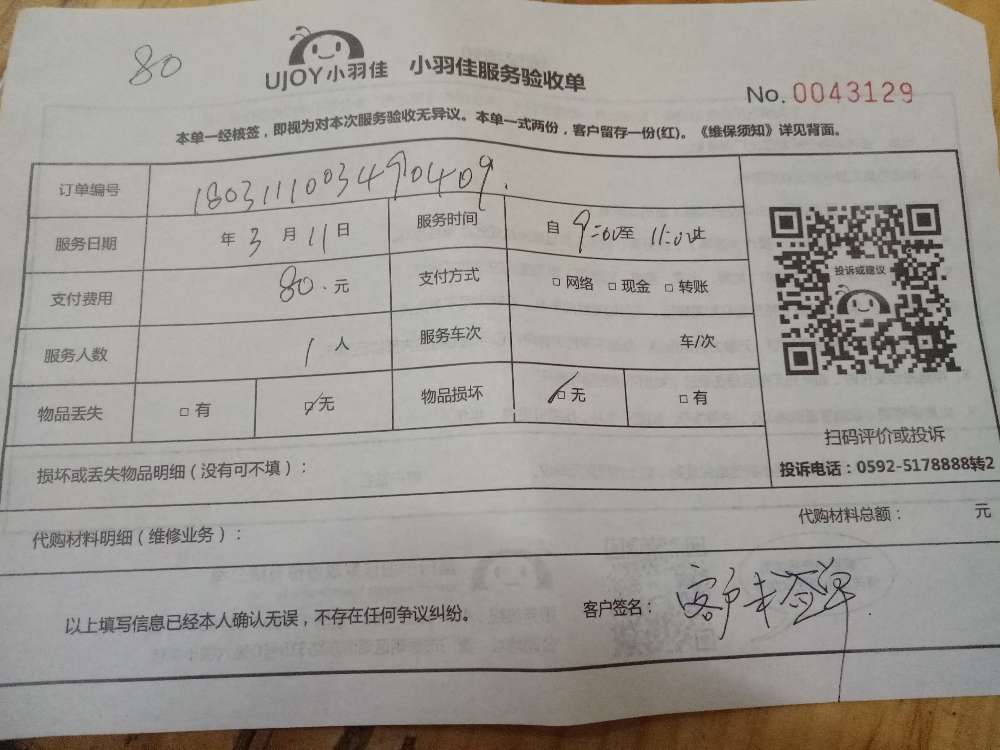 80
UJOY小羽佳 小羽佳服务验收单
No. 0043129
本单一经核签，即视为对本次服务验收无异议。本单一式两份，客户留存一份(红)。《维保须知》详见背面。
订单编号 1803111003490409.
服务日期 年 3 月 11 日 服务时间 自 9:00 至 11:00 止
支付费用 80. 元 支付方式 □ 网络 □ 现金 □ 转账
服务人数 1 人 服务车次 车/次
物品丢失 □ 有 □无 物品损坏 □ 无 □ 有
投诉或建议
扫码评价或投诉
投诉电话：0592-5178888转2
损坏或丢失物品明细（没有可不填）：
代购材料明细（维修业务）： 代购材料总额： 元
以上填写信息已经本人确认无误，不存在任何争议纠纷。 客户签名： 客户未签单